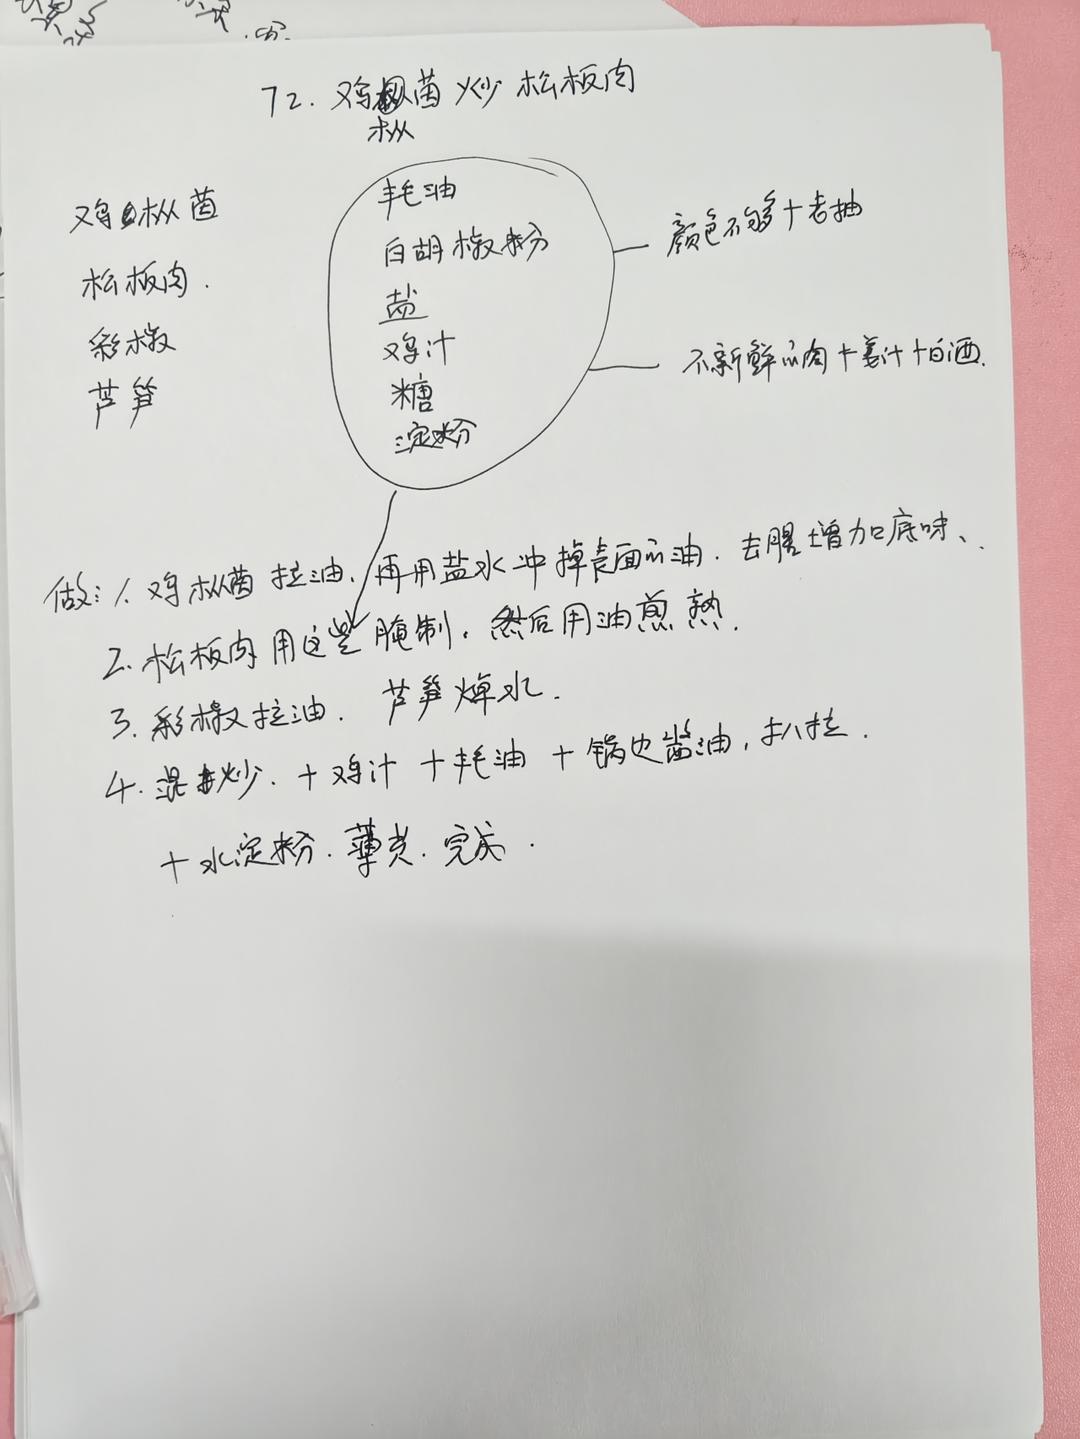 72. 鸡枞菌炒松板肉
枞
鸡枞菌
松板肉.
彩椒
芦笋
耗油
白胡椒粉
盐
鸡汁
糖
淀粉
颜色不够+老抽
不新鲜的肉+姜汁+白酒.
做:1. 鸡枞菌拉油,再用盐水冲掉表面的油.去腥增加底味、.
2. 松板肉用这些腌制,然后用油煎熟.
3. 彩椒拉油. 芦笋焯水.
4. 混炒. +鸡汁+耗油+锅边酱油,扒拉.
+水淀粉.薄芡.完成.